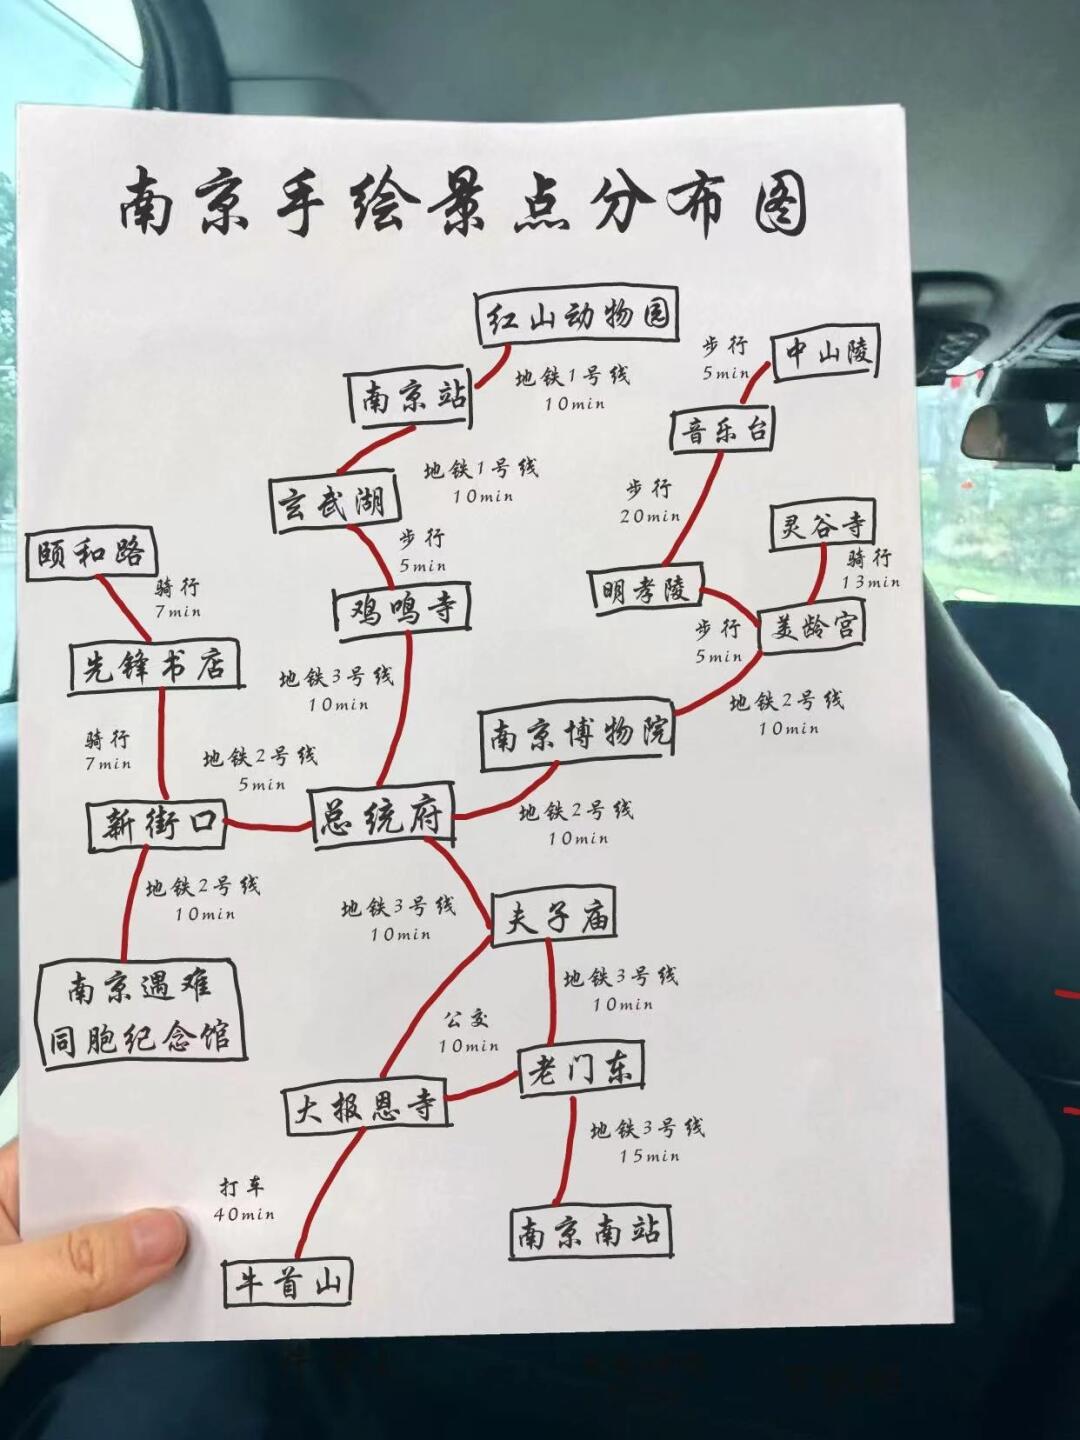 南京手绘景点分布图
红山动物园
地铁1号线
10min
南京站
步行
5min
中山陵
音乐台
地铁1号线
10min
玄武湖
步行
20min
灵谷寺
颐和路
步行
5min
骑行
13min
骑行
7min
鸡鸣寺
明孝陵
美龄宫
步行
5min
先锋书店
地铁3号线
10min
地铁2号线
10min
南京博物院
骑行
7min
地铁2号线
5min
新街口
总统府
地铁2号线
10min
地铁2号线
10min
地铁3号线
10min
夫子庙
南京遇难
同胞纪念馆
地铁3号线
10min
公交
10min
老门东
大报恩寺
地铁3号线
15min
打车
40min
南京南站
牛首山